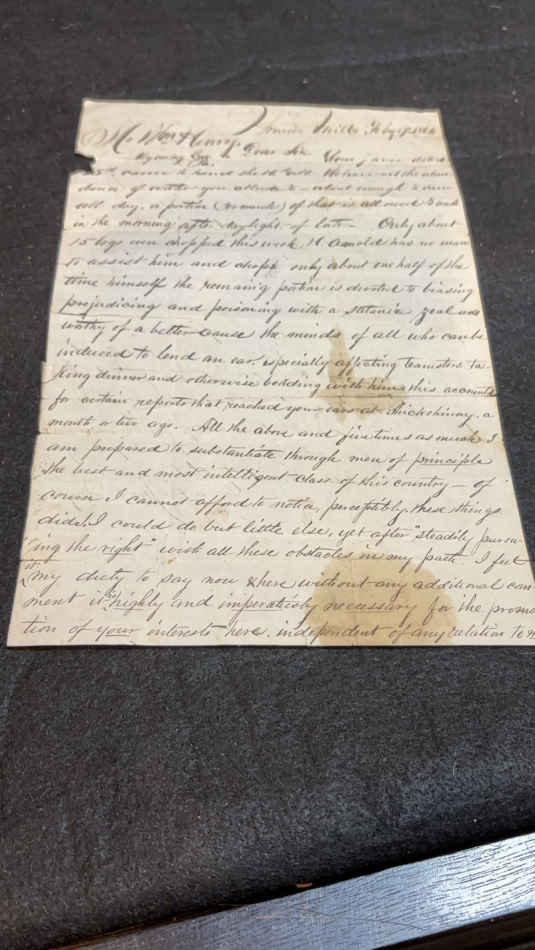 Mills
Mr Wm Henry
Dear Sir
came to hand
dance of water you allude to
well dry, a portion of that is all used &
in the morning after daylight of late — Only about
15 logs were chopped this week. H Arnold has no man
to assist him and chops only about one half of the
time himself the remaing portion is devoted to biasing
prejudicing and poisoning with a satanic zeal
worthy of a better cause the minds of all who can be
induced to lend an ear, especially affecting teamsters ta-
king dinner and otherwise bedding with him this accounts
for certain reports that reached your ears at Shickshinny, a
month or two ago. All the above and five times as much I
am prepared to substantiate through men of principle
the best and most intelligent class of this country — of
course I cannot afford to notice, perceptibly, these things
did I, I could do but little else, yet after "steadily pursu-
"ing the right" with all these obstacles in my path, I felt
it my duty to say now & here without any additional com
ment it is highly and imperatively necessary for the promo
tion of your interests here, independent of any relation to